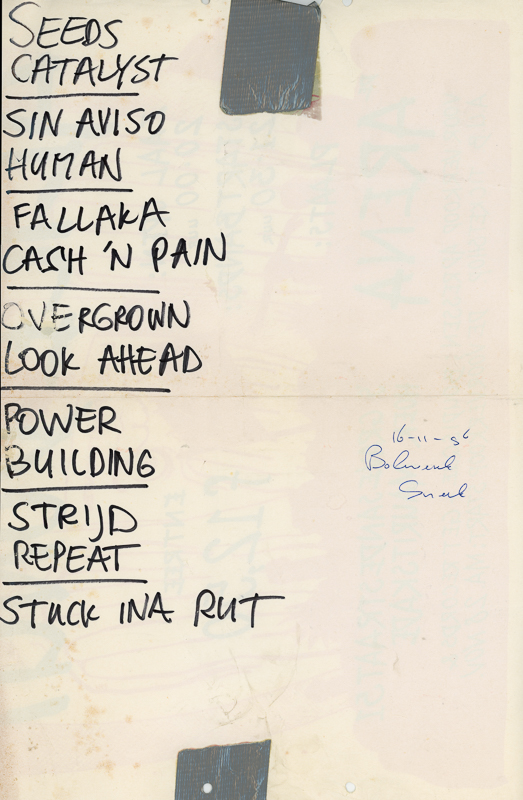 SEEDS
CATALYST
SIN AVISO
HUMAN
FALLAKA
CASH 'N PAIN
OVERGROWN
LOOK AHEAD
POWER
BUILDING
STRIJD
REPEAT
STUCK INA RUT
16-11-96
Bolwerk
Sneek